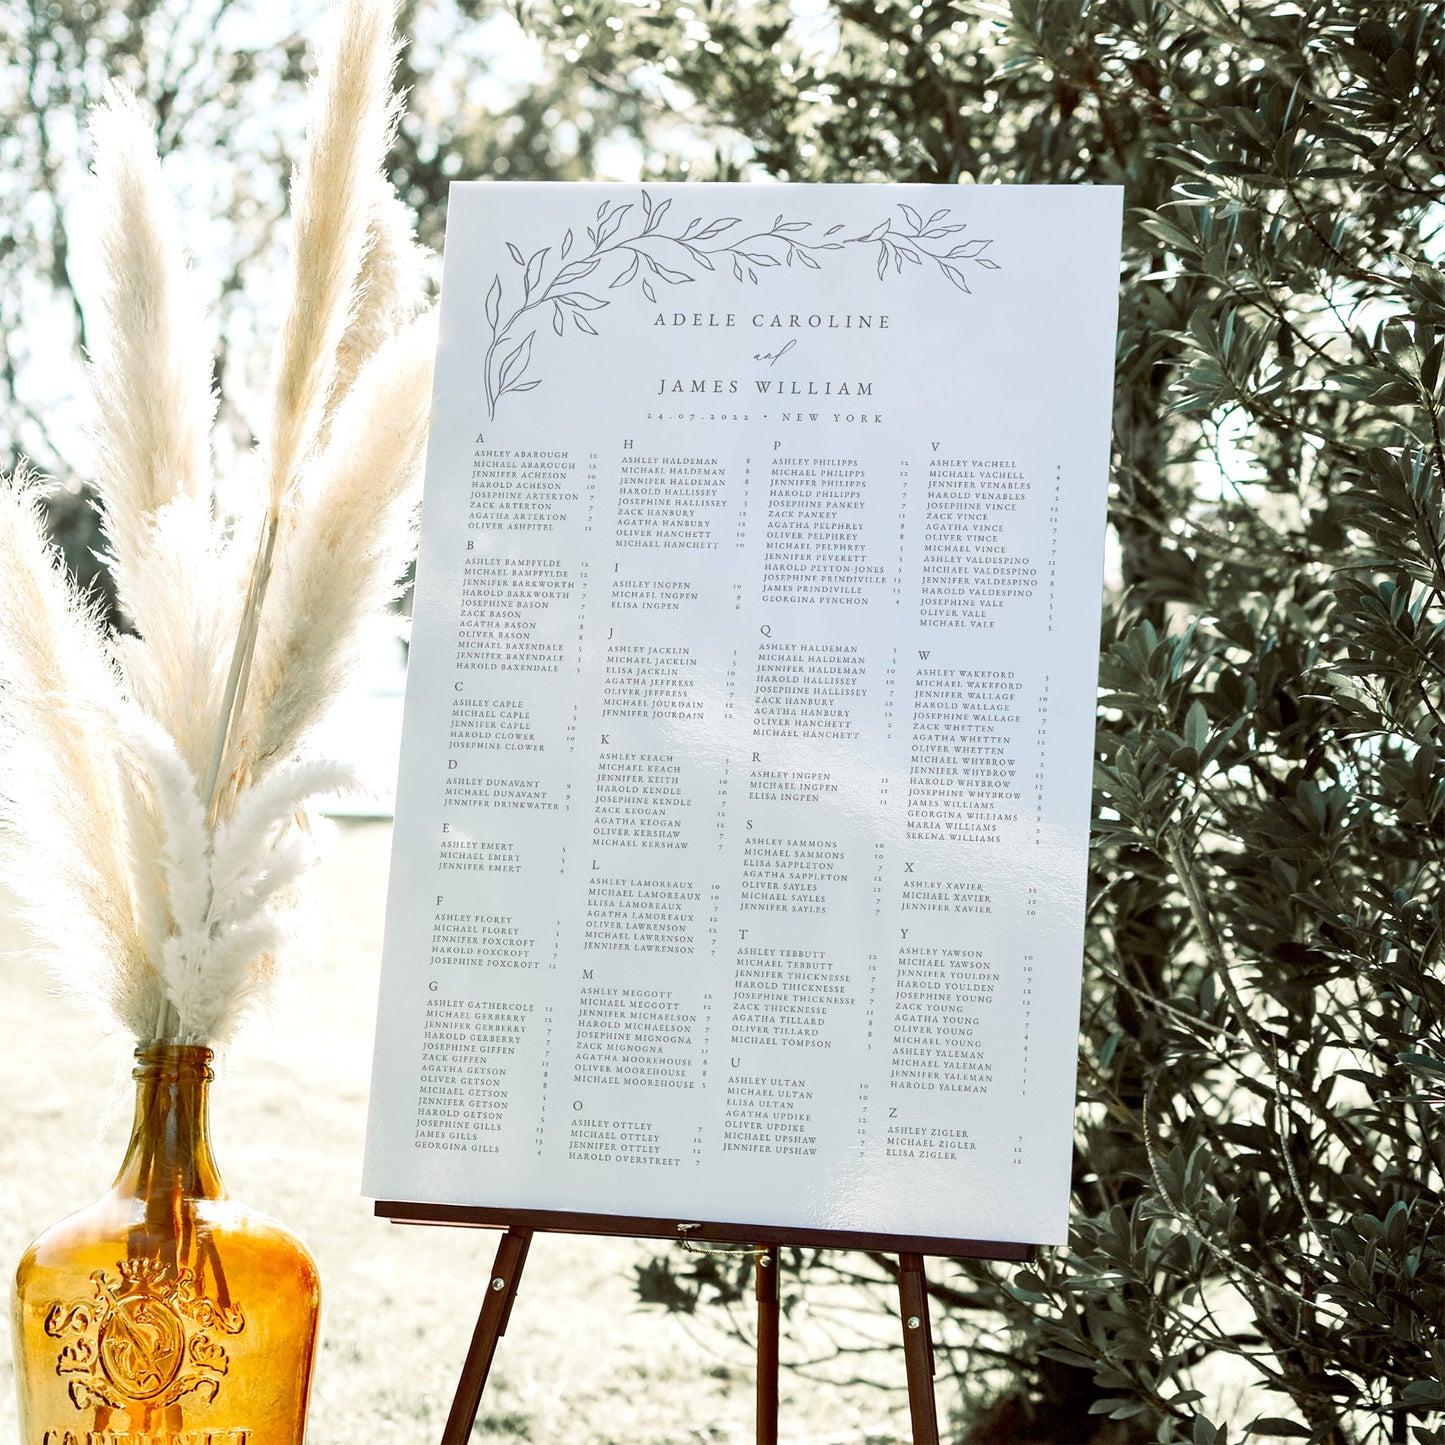 ADELE CAROLINE
and
JAMES WILLIAM
24.07.2022 • NEW YORK
A
ASHLEY ABAROUGH 12
MICHAEL ABAROUGH 12
JENNIFER ACHESON 10
HAROLD ACHESON 10
JOSEPHINE ARTERTON 7
ZACK ARTERTON 7
AGATHA ARTERTON 7
OLIVER ASHPITEL 11
B
ASHLEY BAMPFYLDE 12
MICHAEL BAMPFYLDE 12
JENNIFER BARKWORTH 7
HAROLD BARKWORTH 7
JOSEPHINE BASON 7
ZACK BASON 11
AGATHA BASON 8
OLIVER BASON 8
MICHAEL BAXENDALE 5
JENNIFER BAXENDALE 5
HAROLD BAXENDALE 5
C
ASHLEY CAPLE 5
MICHAEL CAPLE 5
JENNIFER CAPLE 10
HAROLD CLOWER 10
JOSEPHINE CLOWER 7
D
ASHLEY DUNAVANT 9
MICHAEL DUNAVANT 9
JENNIFER DRINKWATER 3
E
ASHLEY EMERT 5
MICHAEL EMERT 5
JENNIFER EMERT 4
F
ASHLEY FLOREY 1
MICHAEL FLOREY 1
JENNIFER FOXCROFT 5
HAROLD FOXCROFT 7
JOSEPHINE FOXCROFT 12
G
ASHLEY GATHERCOLE 12
MICHAEL GERBERRY 12
JENNIFER GERBERRY 7
HAROLD GERBERRY 7
JOSEPHINE GIFFEN 7
ZACK GIFFEN 11
AGATHA GETSON 8
OLIVER GETSON 8
MICHAEL GETSON 5
JENNIFER GETSON 5
HAROLD GETSON 5
JOSEPHINE GILLS 13
JAMES GILLS 13
GEORGINA GILLS 4
H
ASHLEY HALDEMAN 8
MICHAEL HALDEMAN 8
JENNIFER HALDEMAN 8
HAROLD HALLISSEY 3
JOSEPHINE HALLISSEY 3
ZACK HANBURY 12
AGATHA HANBURY 12
OLIVER HANCHETT 10
MICHAEL HANCHETT 10
I
ASHLEY INGPEN 10
MICHAEL INGPEN 9
ELISA INGPEN 6
J
ASHLEY JACKLIN 5
MICHAEL JACKLIN 5
ELISA JACKLIN 10
AGATHA JEFFRESS 10
OLIVER JEFFRESS 7
MICHAEL JOURDAIN 12
JENNIFER JOURDAIN 12
K
ASHLEY KEACH 5
MICHAEL KEACH 5
JENNIFER KEITH 10
HAROLD KENDLE 10
JOSEPHINE KENDLE 7
ZACK KEOGAN 12
AGATHA KEOGAN 12
OLIVER KERSHAW 7
MICHAEL KERSHAW 7
L
ASHLEY LAMOREAUX 10
MICHAEL LAMOREAUX 10
ELISA LAMOREAUX 7
AGATHA LAMOREAUX 12
OLIVER LAWRENSON 12
MICHAEL LAWRENSON 7
JENNIFER LAWRENSON 7
M
ASHLEY MEGGOTT 12
MICHAEL MEGGOTT 12
JENNIFER MICHAELSON 7
HAROLD MICHAELSON 7
JOSEPHINE MIGNOGNA 7
ZACK MIGNOGNA 11
AGATHA MOOREHOUSE 8
OLIVER MOOREHOUSE 8
MICHAEL MOOREHOUSE 5
O
ASHLEY OTTLEY 7
MICHAEL OTTLEY 12
JENNIFER OTTLEY 12
HAROLD OVERSTREET 7
P
ASHLEY PHILIPPS 12
MICHAEL PHILIPPS 12
JENNIFER PHILIPPS 7
HAROLD PHILIPPS 7
JOSEPHINE PANKEY 7
ZACK PANKEY 11
AGATHA PELPHREY 8
OLIVER PELPHREY 8
MICHAEL PELPHREY 5
JENNIFER PEVERETT 5
HAROLD PEYTON-JONES 5
JOSEPHINE PRINDIVILLE 13
JAMES PRINDIVILLE 13
GEORGINA PYNCHON 4
Q
ASHLEY HALDEMAN 5
MICHAEL HALDEMAN 5
JENNIFER HALDEMAN 10
HAROLD HALLISSEY 10
JOSEPHINE HALLISSEY 7
ZACK HANBURY 12
AGATHA HANBURY 12
OLIVER HANCHETT 2
MICHAEL HANCHETT 2
R
ASHLEY INGPEN 11
MICHAEL INGPEN 11
ELISA INGPEN 11
S
ASHLEY SAMMONS 10
MICHAEL SAMMONS 10
ELISA SAPPLETON 7
AGATHA SAPPLETON 12
OLIVER SAYLES 12
MICHAEL SAYLES 7
JENNIFER SAYLES 7
T
ASHLEY TEBBUTT 12
MICHAEL TEBBUTT 12
JENNIFER THICKNESSE 7
HAROLD THICKNESSE 7
JOSEPHINE THICKNESSE 7
ZACK THICKNESSE 11
AGATHA TILLARD 8
OLIVER TILLARD 8
MICHAEL TOMPSON 5
U
ASHLEY ULTAN 10
MICHAEL ULTAN 10
ELISA ULTAN 7
AGATHA UPDIKE 12
OLIVER UPDIKE 12
MICHAEL UPSHAW 7
JENNIFER UPSHAW 7
V
ASHLEY VACHELL 4
MICHAEL VACHELL 4
JENNIFER VENABLES 4
HAROLD VENABLES 2
JOSEPHINE VINCE 12
ZACK VINCE 12
AGATHA VINCE 7
OLIVER VINCE 7
MICHAEL VINCE 7
ASHLEY VALDESPINO 11
MICHAEL VALDESPINO 8
JENNIFER VALDESPINO 8
HAROLD VALDESPINO 5
JOSEPHINE VALE 5
OLIVER VALE 5
MICHAEL VALE 5
W
ASHLEY WAKEFORD 5
MICHAEL WAKEFORD 5
JENNIFER WALLAGE 10
HAROLD WALLAGE 10
JOSEPHINE WALLAGE 7
ZACK WHETTEN 12
AGATHA WHETTEN 12
OLIVER WHETTEN 2
MICHAEL WHYBROW 2
JENNIFER WHYBROW 13
HAROLD WHYBROW 13
JOSEPHINE WHYBROW 8
JAMES WILLIAMS 8
GEORGINA WILLIAMS 8
MARIA WILLIAMS 2
SERENA WILLIAMS 2
X
ASHLEY XAVIER 12
MICHAEL XAVIER 12
JENNIFER XAVIER 10
Y
ASHLEY YAWSON 10
MICHAEL YAWSON 10
JENNIFER YOULDEN 7
HAROLD YOULDEN 12
JOSEPHINE YOUNG 12
ZACK YOUNG 7
AGATHA YOUNG 7
OLIVER YOUNG 4
MICHAEL YOUNG 4
ASHLEY YALEMAN 1
MICHAEL YALEMAN 1
JENNIFER YALEMAN 1
HAROLD YALEMAN 1
Z
ASHLEY ZIGLER 7
MICHAEL ZIGLER 12
ELISA ZIGLER 12
CABERNET